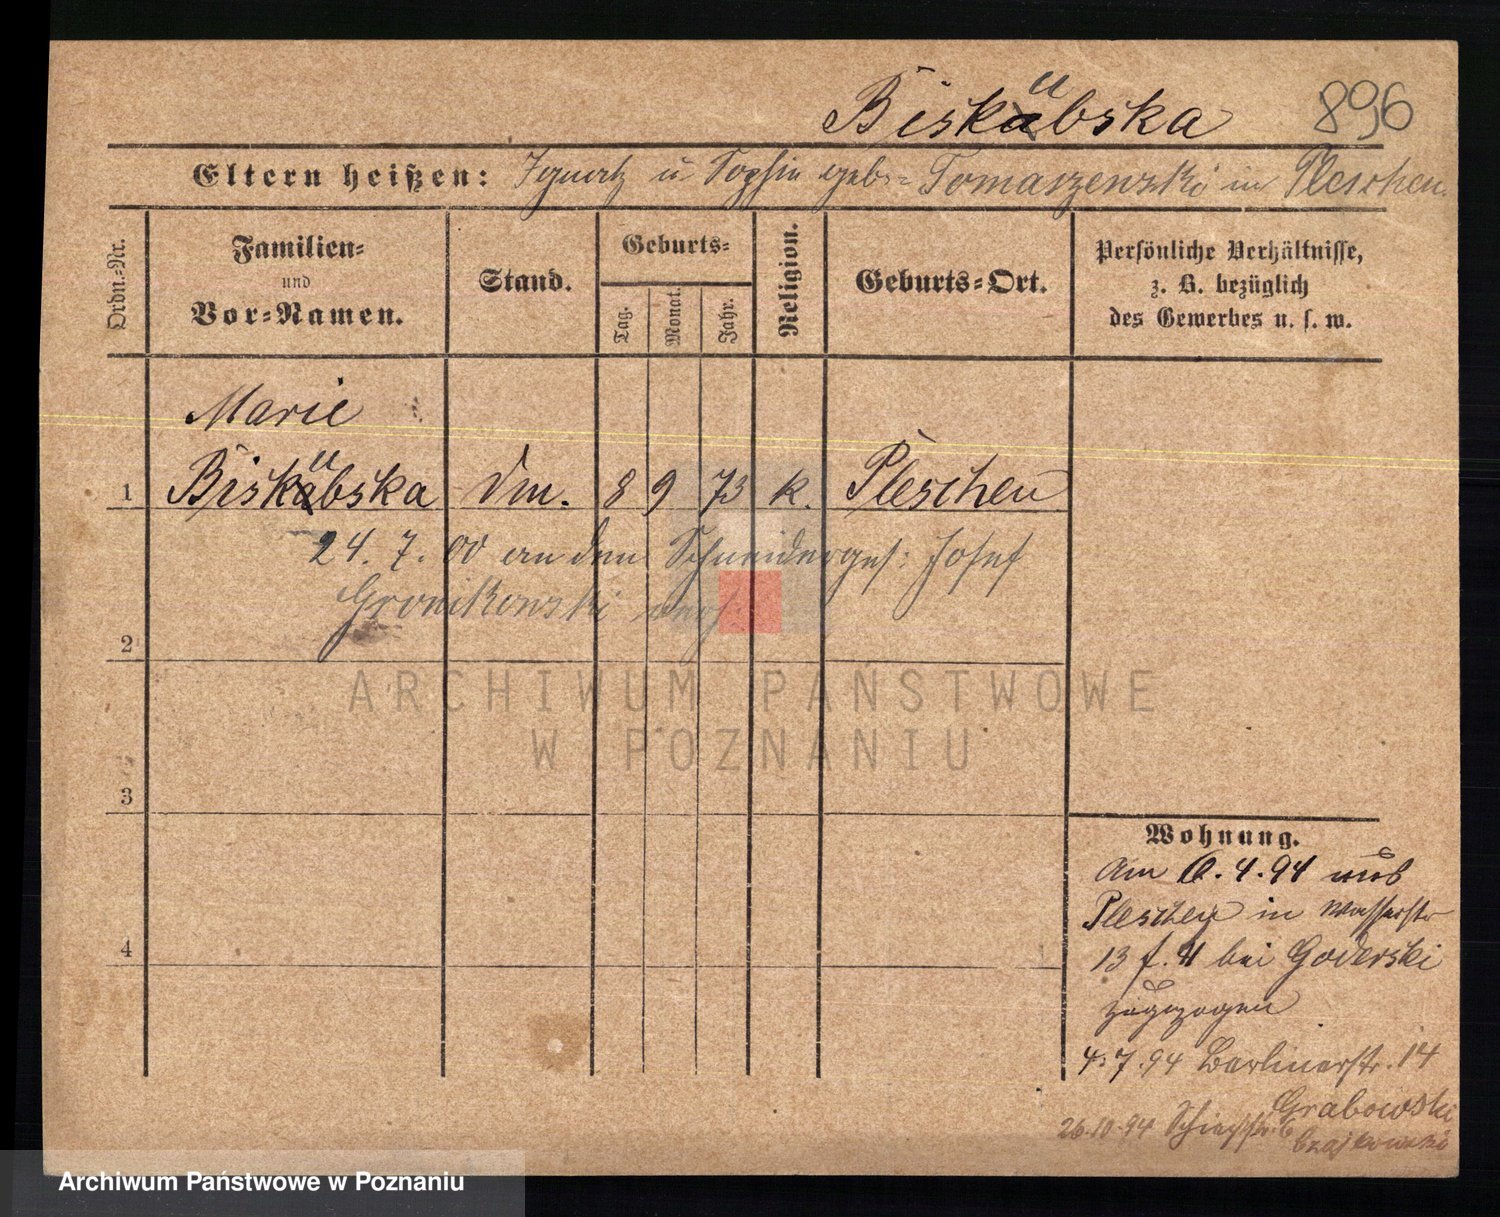 Biskubska 896
Eltern heißen: Ignatz u Sophie geb. Tomaszewski in Pleschen.
Ordn.-Nr.
Familien-
und
Vor-Namen.
Stand.
Geburts-
Tag.
Monat.
Jahr.
Religion.
Geburts-Ort.
Persönliche Verhältnisse,
z. B. bezüglich
des Gewerbes u. s. w.
Marie
1 Biskubska 8 9 73 k. Pleschen
24. 7. 00 an den Schneiderges: Josef
Gronikowski
2
3
4
ARCHIWUM PAŃSTWOWE
W POZNANIU
Wohnung.
Am 6.4.94 aus
Pleschen in Wasserstr
13 f. II bei Goderski
zugezogen
4.7.94 Berlinerstr. 14
Grabowski
26.10.94 Schiessstr. 6
Czajkowski
Archiwum Państwowe w Poznaniu